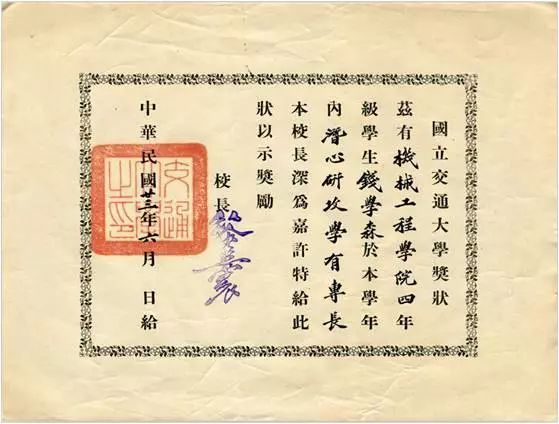 國立交通大學獎狀
茲有機械工程學院四年
級學生錢學森於本學年
內潛心研攻學有專長
本校長深為嘉許特給此
狀以示獎勵
校長
黎照寰
中華民國廿三年六月 日給